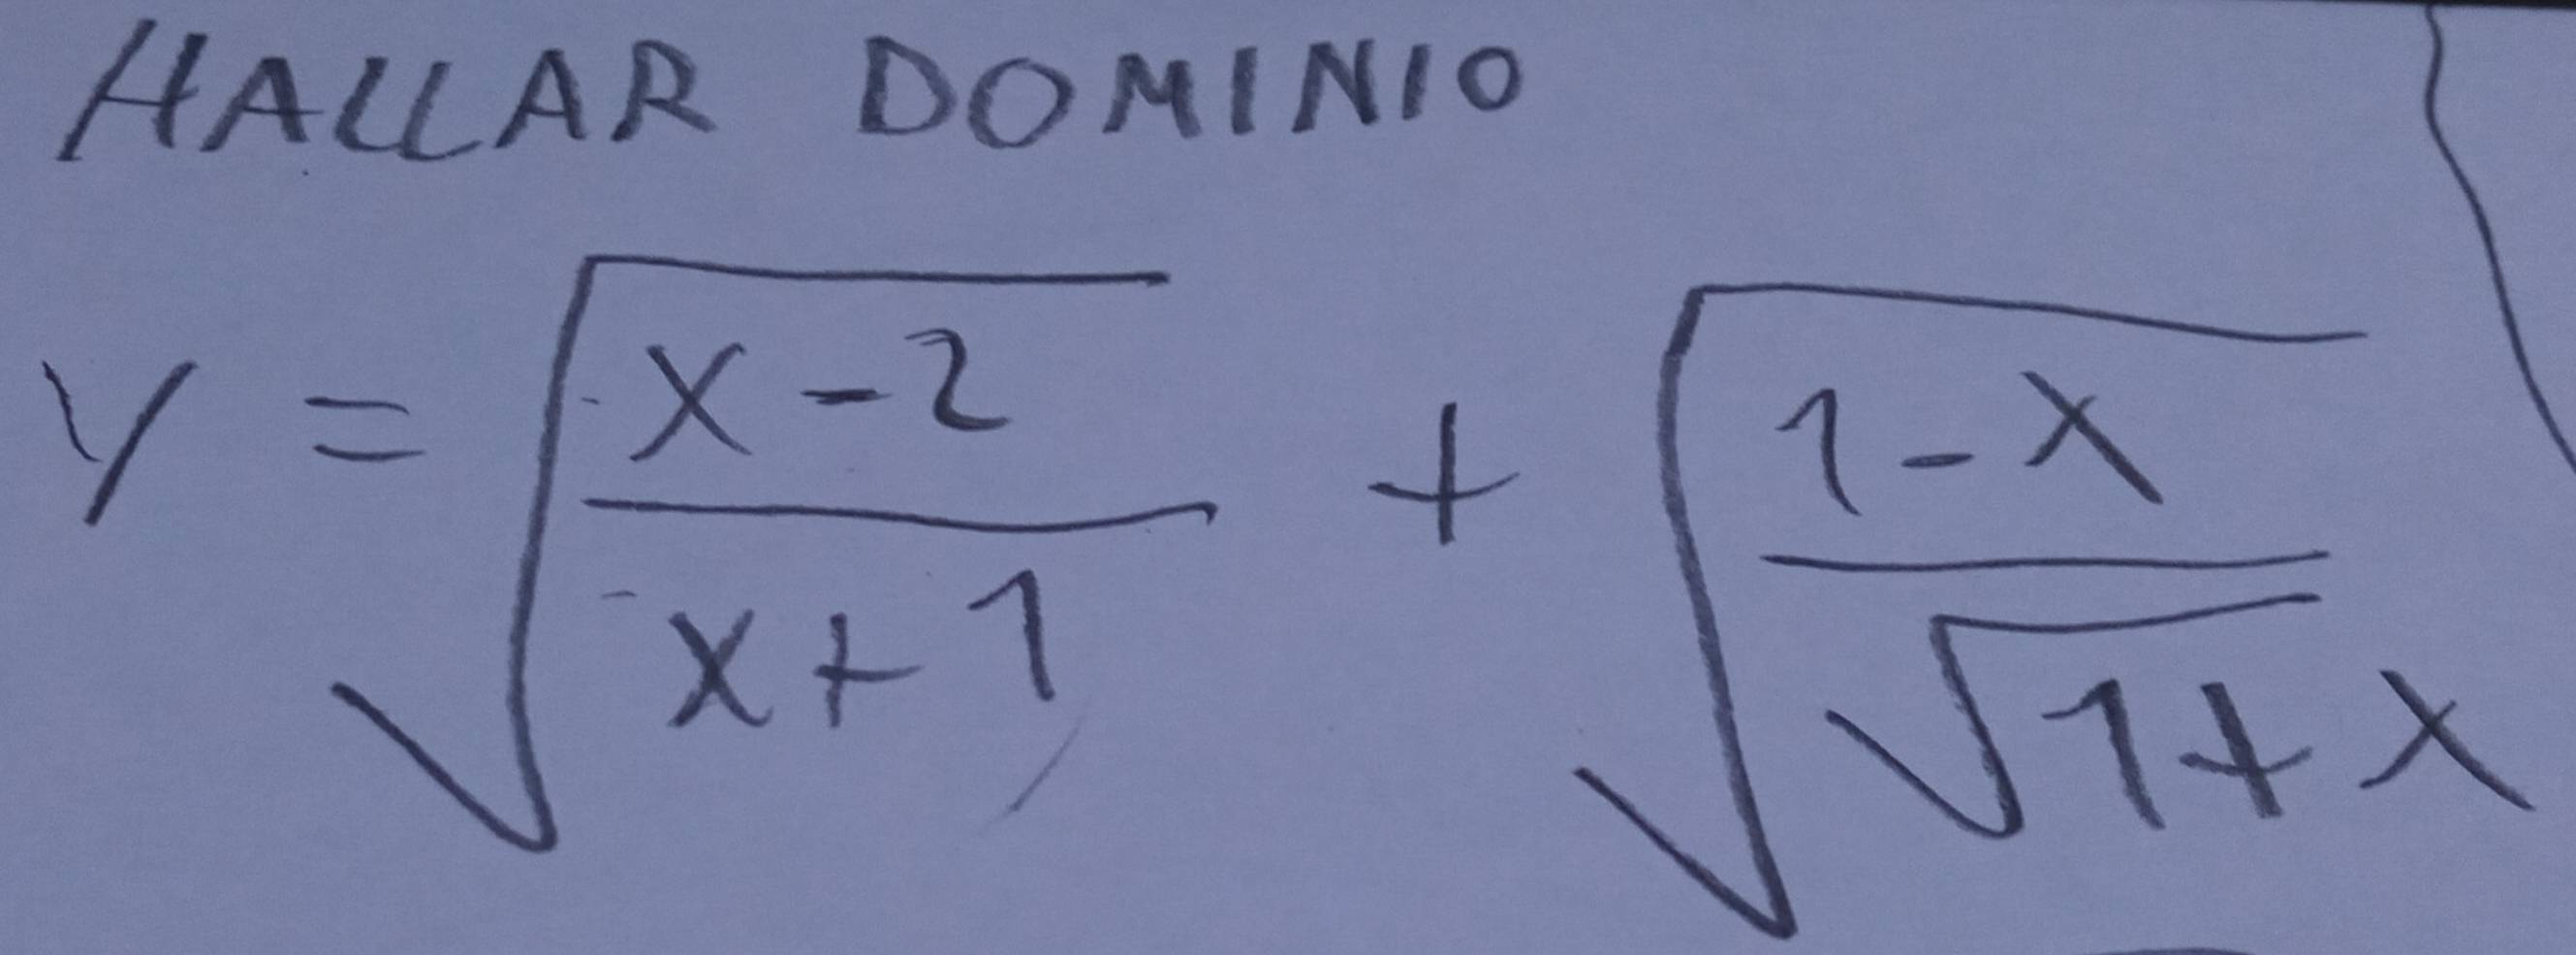 HALLAR DOMINIO
Y = √((x-2)/(x+1)) + √((1-x)/√(1+x))